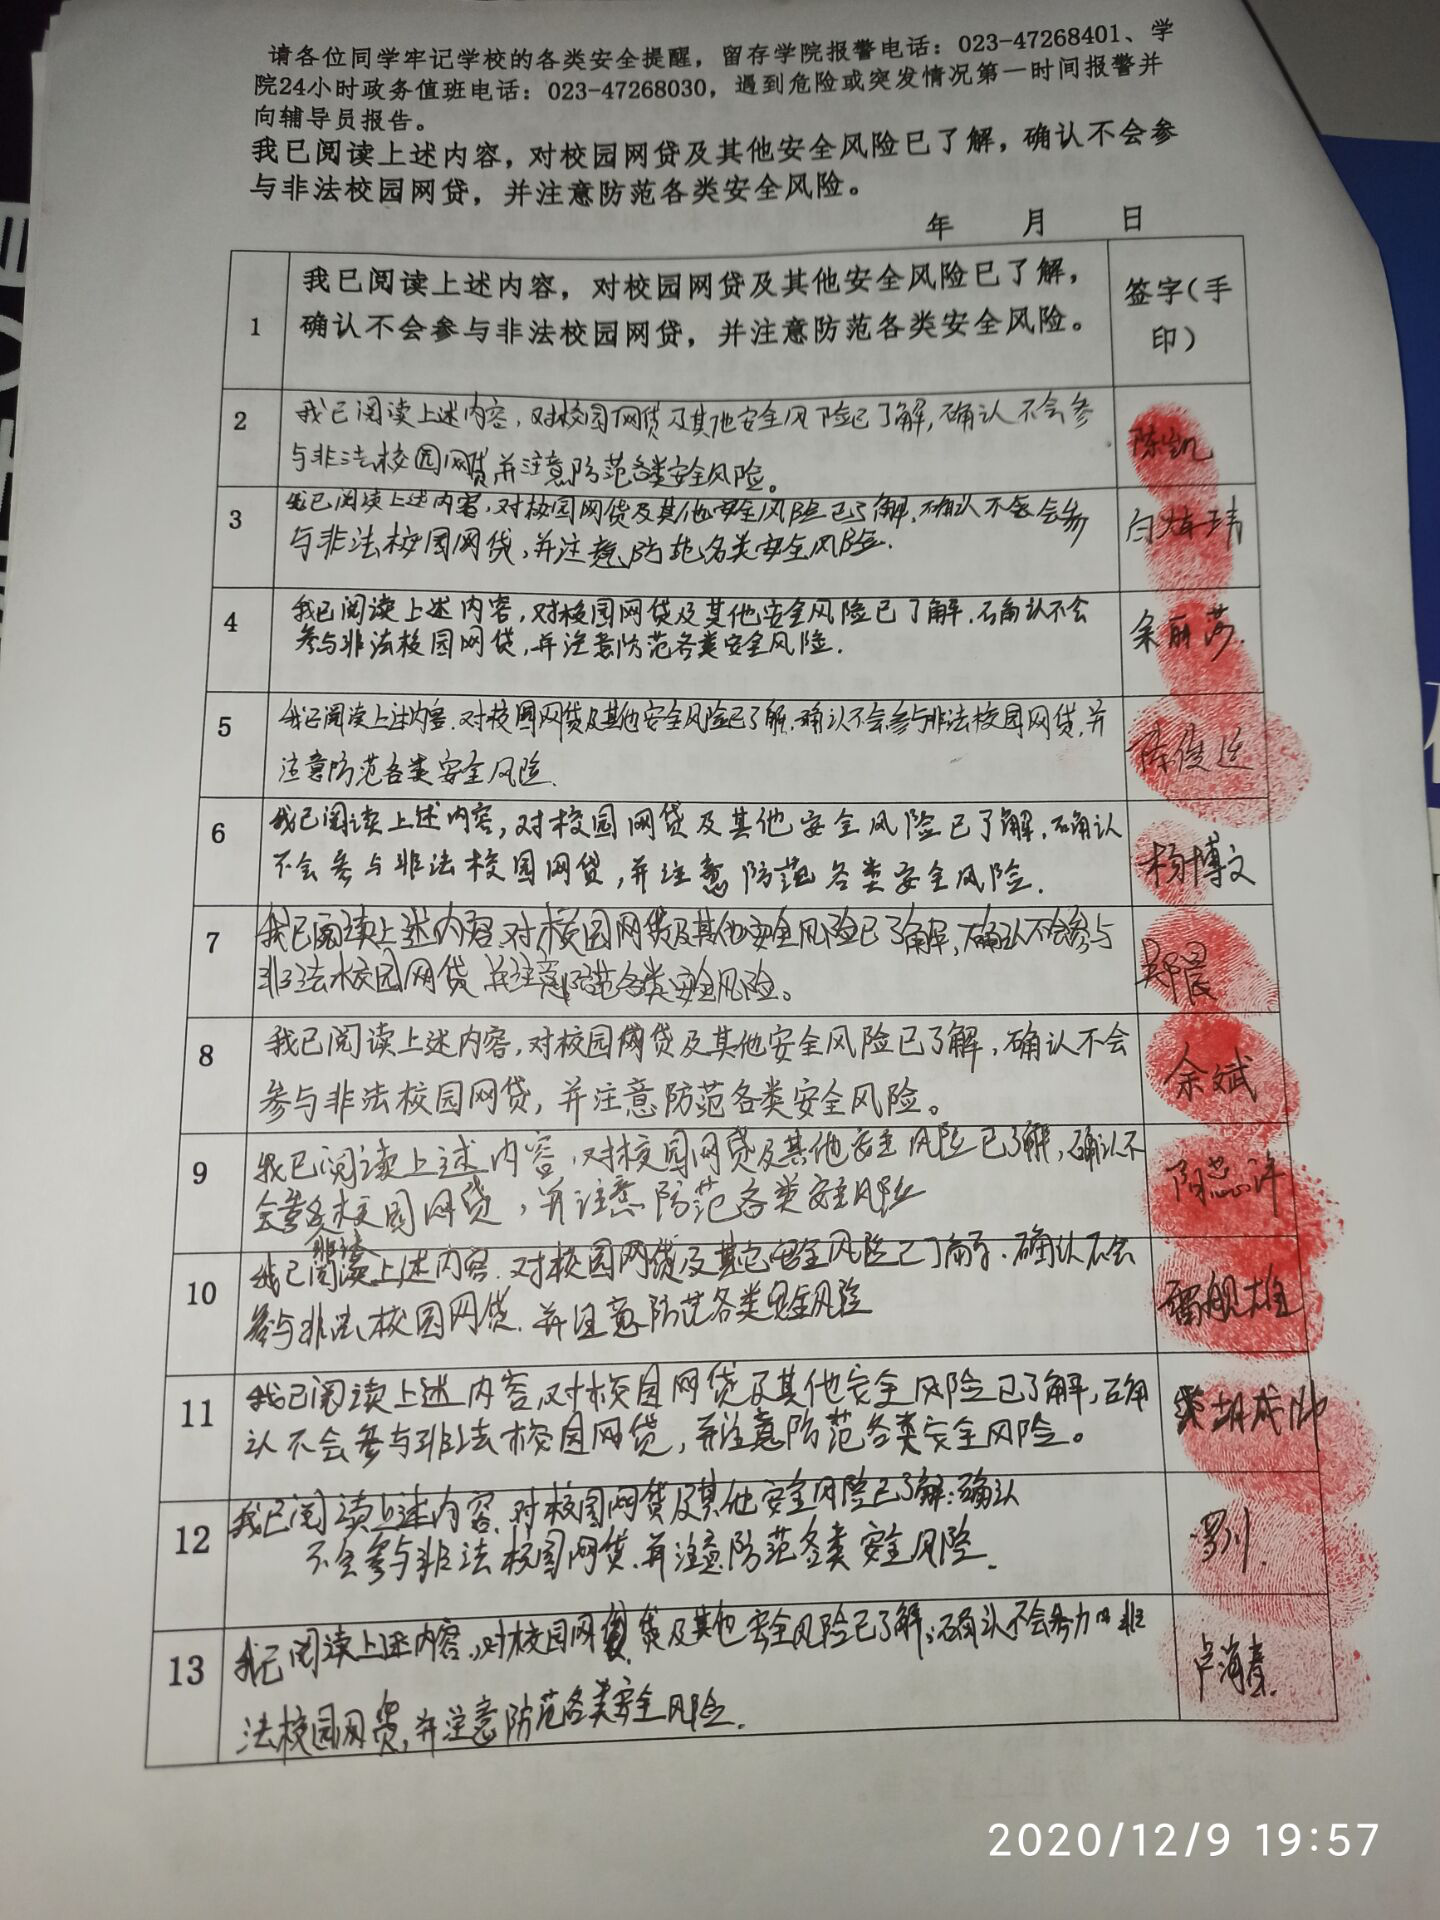 请各位同学牢记学校的各类安全提醒，留存学院报警电话：023-47268401、学
院24小时政务值班电话：023-47268030，遇到危险或突发情况第一时间报警并
向辅导员报告。
我已阅读上述内容，对校园网贷及其他安全风险已了解，确认不会参
与非法校园网贷，并注意防范各类安全风险。
年 月 日
1 我已阅读上述内容，对校园网贷及其他安全风险已了解， 签字（手
确认不会参与非法校园网贷，并注意防范各类安全风险。 印）
2 我已阅读上述内容，对校园网贷及其他安全风险已了解，确认不会参
与非法校园网贷并注意防范各类安全风险。
陈凯
3 我已阅读上述内容，对校园网贷及其他安全风险已了解，确认不会参
与非法校园网贷，并注意防范各类安全风险.
4 我已阅读上述内容，对校园网贷及其他安全风险已了解，确认不会
参与非法校园网贷，并注意防范各类安全风险.
余丽莎.
5 我已阅读上述内容.对校园网贷及其他安全风险已了解.确认不会参与非法校园网贷，并
注意防范各类安全风险.
6 我已阅读上述内容，对校园网贷及其他安全风险已了解，确认
不会参与非法校园网贷，并注意防范各类安全风险.
杨博文
7 我已阅读上述内容，对校园网贷及其他安全风险已了解，确认不会参与
非法校园网贷 并注意防范各类安全风险。
8 我已阅读上述内容，对校园网贷及其他安全风险已了解，确认不会
参与非法校园网贷，并注意防范各类安全风险。
余斌
9 我已阅读上述内容，对校园网贷及其他安全风险已了解，确认不
会参与校园网贷，并注意防范各类安全风险
非法
10 我已阅读上述内容.对校园网贷及其它安全风险已了解.确认不会
参与非法校园网贷.并注意防范各类安全风险
11 我已阅读上述内容，对校园网贷及其他安全风险已了解，确
认不会参与非法校园网贷，并注意防范各类安全风险。
12 我已阅读上述内容.对校园网贷及其他安全风险已了解；确认
不会参与非法校园网贷.并注意防范各类安全风险.
罗川.
13 我已阅读上述内容，对校园网贷及其他安全风险已了解；确认不会参加非
法校园网贷，并注意防范各类安全风险.
卢海春.
2020/12/9 19:57